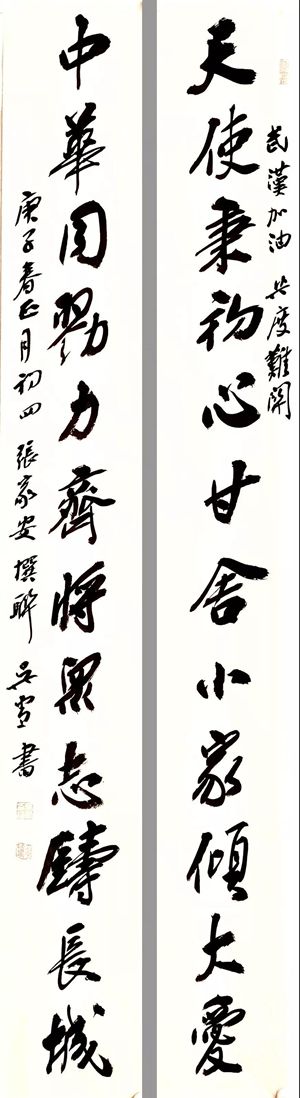 武漢加油 共度難關
天使秉初心甘舍小家傾大愛
中華同勠力齊將眾志鑄長城
庚子春正月初四 張家安撰聯 吳雪書